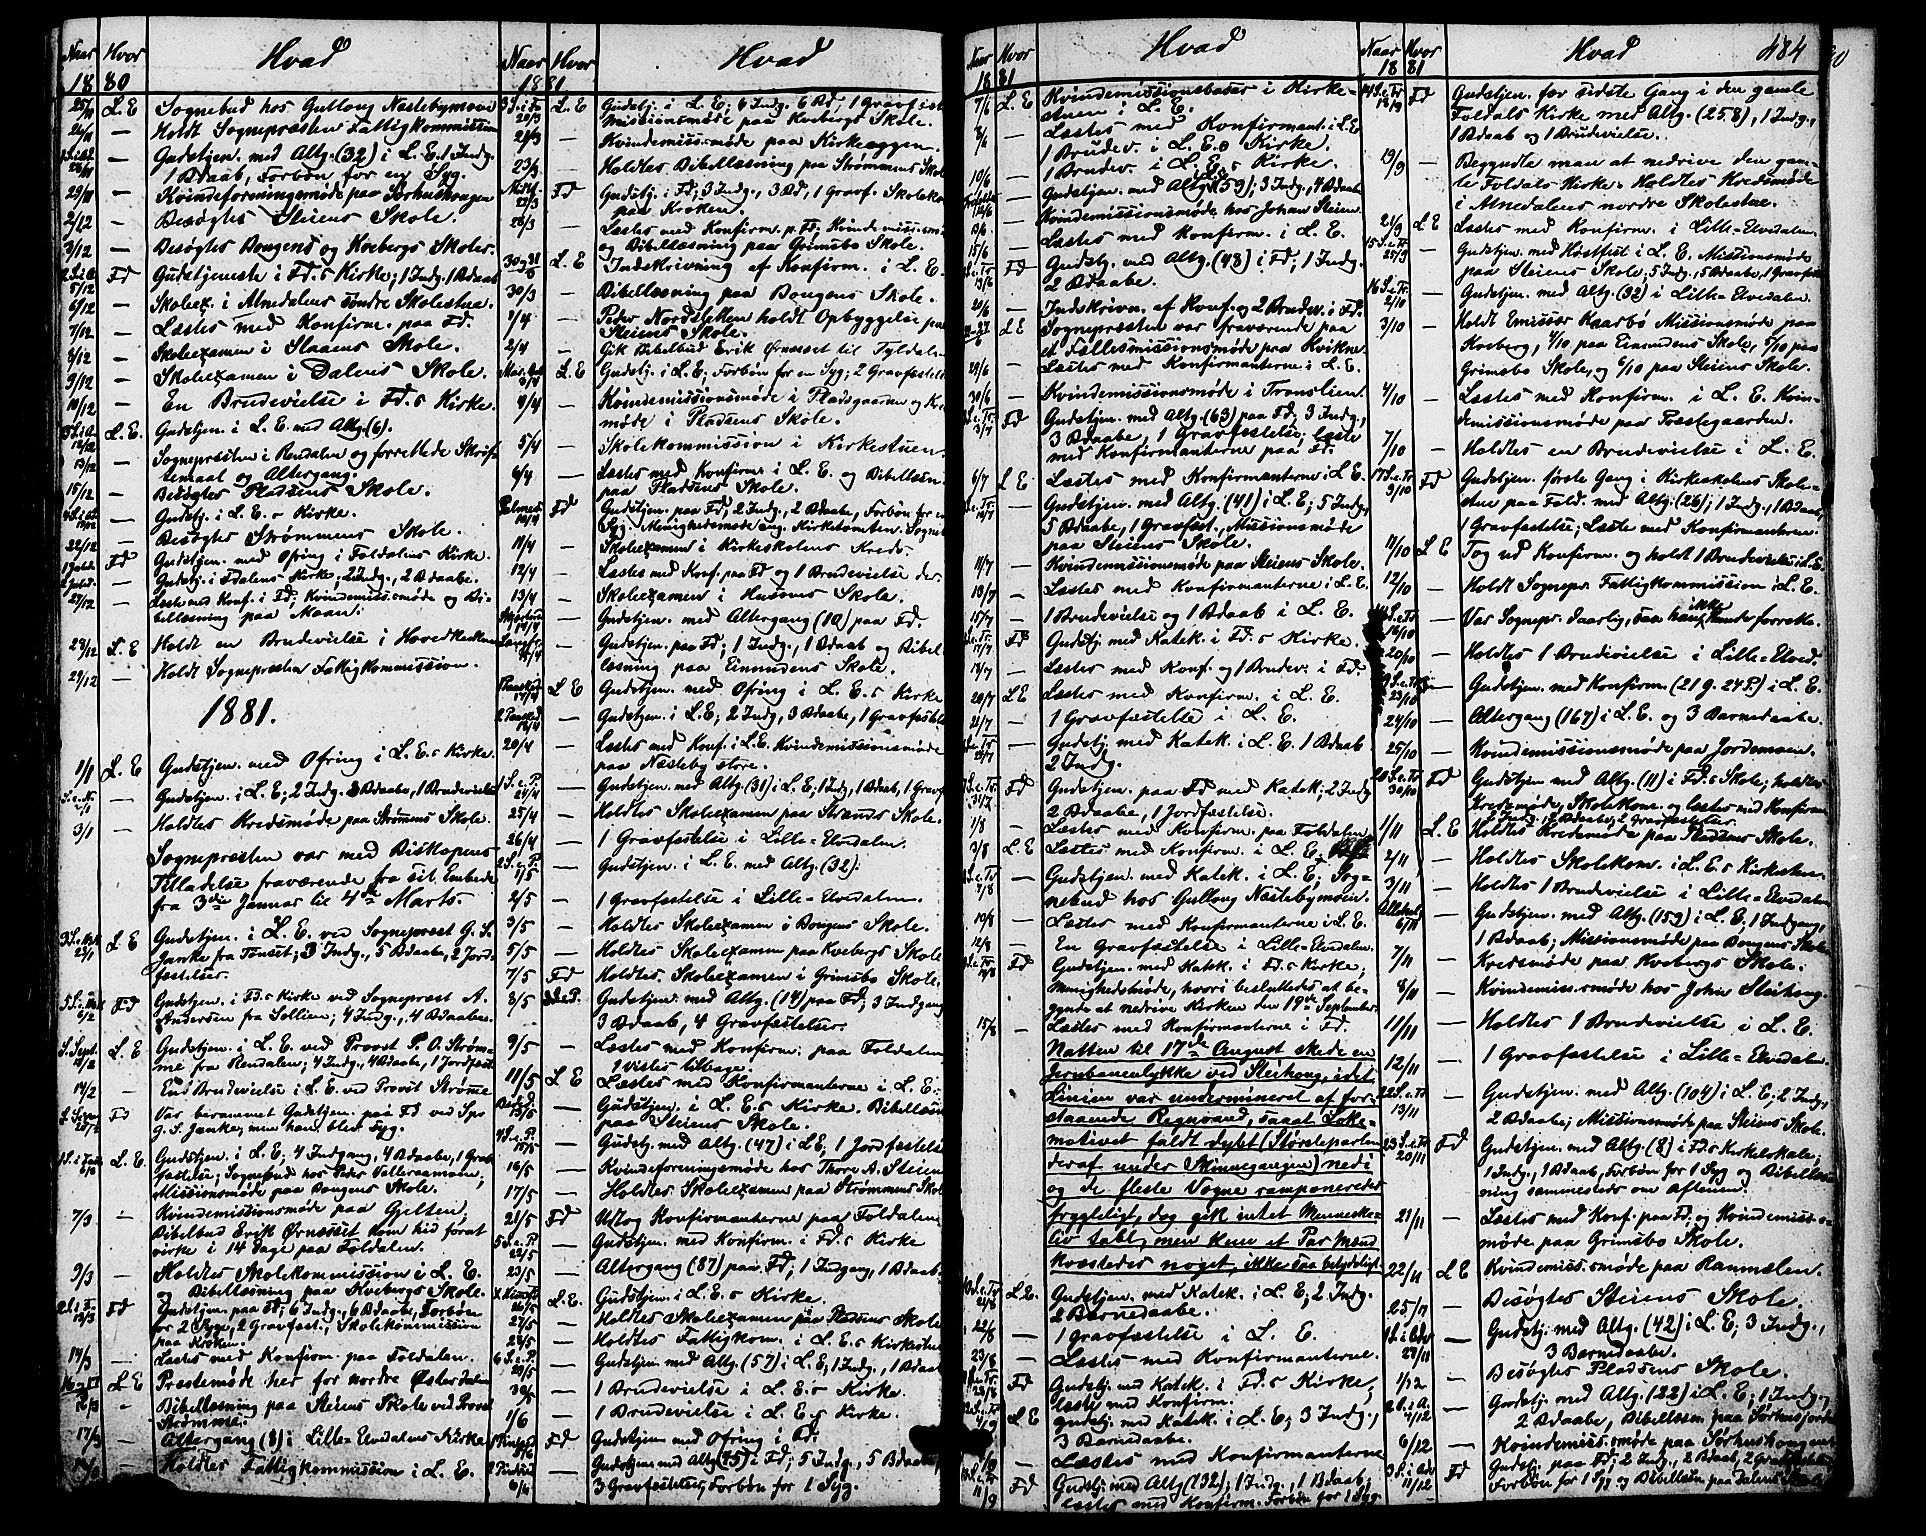 Naar Hvor Hvad Naar Hvor Hvad
1880 1881
25/11 L. E Sognebud hos Gullong Næstebymoen
26/11 — Holdt Sognepræsten Fattigkommission
1 S. i A. 28/11 — Gudstjen. med Altg. (32) i L. E. 1 Indg.
1 Bdaab, Forbøn for en Syg.
29/11 — Kvindeforeningsmøde paa Sørhushaugen
2/12 — Besøgtes Steiens Skole.
3/12 — Besøgtes Bougens og Kvebergs Skoler.
2 S. i A. 5/12 Fd Gudstjeneste i Fd.s Kirke; 1 Indg. 1 Bdaab
6/12 — Skoleex. i Alnedalens søndre Skolestue.
7/12 — Læstes med Konfirm. paa Fd.
8/12 — Skoleexamen i Slaaens Skole.
9/12 — Skoleexamen i Dalens Skole.
10/12 — En Brudevielse i Fd.s Kirke.
3 S. i A. 12/12 L. E. Gudstjen. i L. E. med Altg. (6).
13/12 — Sognepræsten i Rendalen og forrettede Skrif-
temaal og Altergang.
15/12 — Besøgtes Pladsens Skole.
4 S. i A. 19/12 — Gudstj. i L. E.s Kirke.
22/12 — Besøgtes Strømmens Skole.
1 Juled. Fd Gudstjen. med Ofring i Foldalens Kirke.
2 Juled. — Gudstj. i Fdalens Kirke, 2 Indg., 2 Bdaabe.
27/12 — Læste med Konf. i Fd; Kvindemiss.møde og Bi-
bellæsning paa Moan.
28/12 L. E Holdt en Brudevielse i Hovedkirken
29/12 — Holdt Sognepræsten Fattigkommission.
1881.
1/1 L. E Gudstjen. med Ofring i L. E.s Kirke.
S. e. N. 2/1 — Gudstjen. i L. E; 2 Indg. 3 Bdaab, 1 Brudevielse
3/1 — Holdtes Kredsmøde paa Strømmens Skole.
Sognepræsten var med Biskopens
Tilladelse fraværende fra sit Embede
fra 3die Januar til 4de Marts.
23/1 L E Gudstjen. i L. E. ved Sognepræst G. S.
Janke fra Tønset; 3 Indg., 5 Bdaabe, 2 Jord-
festelser.
6/2 Fd Gudstjen. i Fd.s Kirke ved Sognepræst A.
Andersen fra Sollien; 4 Indg., 4 Bdaabe.
S. Sept. 13/2 L. E. Gudstjen. i L. E. ved Provst P. A. Strøm-
me fra Rendalen; 4 Indg., 4 Bdaabe, 1 Jordfest.
14/2 — En Brudevielse i L. E. ved Provst Strømme
Fd Var berammet Gudstjen. paa Fd ved Spr.
G. S. Janke, men han blev syg.
1 S. i Faste 6/3 L. E. Gudstjen. i L. E; 4 Indgang, 4 Bdaabe, 1 Grav-
fæstelse; Sognebud hos Peder
Missionsmøde paa Bougens Skole.
7/3 — Kvindemissionsmøde paa Gjelten,
Bibelbud Erik Ørnsset kom hid forat
virke i 14 Dage paa Foldalen.
9/3 — Holdtes Skolekommission i L. E.
og Bibellæsning paa Kvebergs Skole.
2 S. i F. 13/3 Fd Gudstjen. paa Fd; 6 Indg., 6 Bdaabe, Forbøn
for 2 Syge, 2 Gravfæst., Skolekommission
paa Kroken.
14/3 — Læstes med Konfirm. paa Foldalen.
L E Præstemøde her for nordre Østerdalen
— Bibellæsning paa Steiens Skole ved Provst
Strømme.
17/3 — Altergang (8) i Lille-Elvedalens Kirke
— Holdtes Fattigkommission i L. E.
3 S. i F. 20/3 L. E Gudstj. i L. E; 6 Indg. 6 Bd, 1 Gravfæst.
Missionsmøde paa Kvebergs Skole.
21/3 — Kvindemiss.møde paa Kirkeøggen.
23/3 — Holdtes Bibellæsning paa Strømmens Skole
Fd Gudstj. i Fd; 3 Indg., 3 Bd, 1 Gravf. Skolekom.
paa Kroken.
28/3 — Læstes med Konfirm. p. Fd; Kvindemissionsmøde
og Bibellæsning paa Grimsbo Skole.
30 og 31/3 L. E Indskrivning af Konfirm. i L. E.
30/3 — Bibellæsning paa Bougens Skole.
1/4 — Peder Nordsletten holdt Opbyggelse paa
Steiens Skole.
2/4 — Gik Bibelbud Erik Ørnsset til Tyldalen
3/4 L. E Gudstj. i L. E; Forbøn for en Syg; 2 Gravfæstelser
4/4 — Kvindemissionsmøde i Pladsgaarden og
møde i Pladsens Skole.
5/4 — Skolekommission i Kirkestuen.
6/4 — Læstes med Konfirm. i L. E. og Bibellæsn.
paa Pladsens Skole.
Palmes. 10/4 Fd Gudstjen. paa Fd; 2 Indg., 2 Bdaabe, Forbøn for en
Syg. Menighedsmøde ang. Kirketomten.
11/4 — Skoleexamen i Kirkeskolens Kreds.
12/4 — Læstes med Konf. paa Fd og 1 Brudevielse der.
13/4 — Skoleexamen i Husum Skole.
14/4 — Gudstjen. med Altergang (10) paa Fd.
Langfr. 15/4 — Gudstjen. paa Fd; 1 Indg., 1 Bdaab og Bibel-
læsning paa Einundens Skole.
17/4 L E Gudstjen. med Ofring i L. E.s Kirke
18/4 — Gudstjen. i L. E; 2 Indg, 3 Bdaabe, 1 Gravfæstelse
20/4 — Læstes med Konf. i L. E. Kvindemissionsmøde
paa Næsteby store.
1 S. e. P. 24/4 — Gudstjen. med Altg. (31) i L. E; 1 Indg, 1 Bdaab, 1 Gravf.
25/4 — Holdtes Skoleexamen paa Strands Skole.
26/4 — 1 Gravfæstelse i Lille-Elvedalen.
2 S. e. P. 1/5 — Gudstjen. i L. E. med Altg. (32).
2/5 — 1 Gravfæstelse i Lille-Elvedalen.
3/5 — Holdtes Skoleexamen i Bougens Skole.
5/5 — Holdtes Skoleexamen paa Kvebergs Skole
7/5 Fd Holdtes Skoleexamen i Grimsbo Skole.
8/5 3 S. e. P. Gudstjen. med Altg. (14) paa Fd; 3 Indgang
3 Bdaab, 4 Gravfæstelser.
9/5 — Læstes med Konfirm. paa Foldalen
1 vistes tilbage.
11/5 L E Læstes med Konfirmanterne i L. E.
13/5 — Gudstjen. i L. E.s Kirke. Bibellæsn.
paa Steiens Skole.
4 S. e. P. 15/5 — Gudstj. med Altg. (47) i L E; 1 Jordfæstelse
16/5 — Kvindeforeningsmøde hos Thore A. Steien
17/5 — Holdtes Skoleexamen paa Strømmens Skole
21/5 Fd Udtog Konfirmanterne paa Foldalen
5 S. e. P. 22/5 — Gudstjen. med Konfirm. i Fd.s Kirke
23/5 — Altergang (87) paa Fd; 1 Indgang, 1 Bdaab.
26/5 L. E. Gudstjen. i L. E.s Kirke.
27/5 — Holdtes Skoleexamen paa Pladsens Skole
28/5 — Holdtes Fattigkom. i L. E.s Kirkestue
6 S. e. P. 29/5 — Gudstjen. med Altg. (57) i L. E; 1 Indg., 1 Bdaab
30/5 — 1 Brudevielse i L. E.s Kirke.
1/6 — 1 Brudevielse i L. E.s Kirke.
Fd Gudstjen med Ofring i Fd.
6/6 — Gudstjen. med Altg. (75) i Fd; 5 Indg., 5 Bdaabe,
3 Gravfæstelser, Forbøn for 1 Syg.
Naar Hvor Hvad Naar Hvor Hvad 484
1881 1881
7/6 L. E Kvindemissionsbasar i Kirke-
stuen i L. E.
8/6 — Læstes med Konfirmant. i L. E
1 Brudev. i L. E.s Kirke.
10/6 — 1 Brudev. i L. E.s Kirke.
12/6 — Gudstjen. med Altg. (59); 3 Indg., 4 Bdaabe
13/6 — Kvindemissionsmøde hos Johan Steien.
15/6 — Læstes med Konfirm. i L. E.
19/6 Fd Gudstj. med Altg. (48) i Fd; 1 Indg.
2 Bdaabe.
20/6 — Indskrivn. af Konf. og 2 Brudev. i Fd.
L E Sognepræsten var fraværende paa
et Fællesmissionsmøde paa Kvikne.
29/6 — Læstes med Konfirmanterne i L. E.
30/6 — Kvindemissionsmøde i Tronslien.
3/7 Fd Gudstjen. med Altg. (63) paa Fd; 3 Indg.,
3 Bdaabe, 1 Gravfæstelse; læste
med Konfirmanterne paa Fd.
6/7 L E Læstes med Konfirmanterne i L E.
10/7 — Gudstjen. med Altg. (41) i L. E; 5 Indg,
5 Bdaabe, 1 Gravfæst., Missionsmøde
paa Steiens Skole.
11/7 — Kvindemissionsmøde paa Steiens Skole.
13/7 — Læstes med Konfirmanterne i L. E.
15/7 — 1 Brudevielse og 1 Bdaab i L. E.
17/7 Fd Gudstj med Katek. i Fd.s Kirke.
18/7 — Læstes med Konf. og 1 Brudev. i Fd.
20/7 L E Læstes med Konfirm. i L. E.
21/7 — 1 Gravfæstelse i L. E.
24/7 — Gudstj. med Katek. i L. E. 1 Bdaab
2 Indg.
31/7 Fd Gudstjen. paa Fd med Katek; 2 Indg
2 Bdaabe, 1 Jordfæstelse.
1/8 — Læstes med Konfirm. paa Foldalen
3/8 L. E Læstes med Konfirm. i L. E.
7/8 — Gudstjen. med Katek. i L. E; Sog-
nebud hos Gullong Næstebymoen.
10/8 — Læstes med Konfirmanterne i L. E.
12/8 — En Gravfæstelse i Lille-Elvdalen.
14/8 Fd Gudstjen. med Katek. i Fd.s Kirke;
Menighedsmøde, hvori besluttedes at be-
gynde at nedrive Kirken den 19de September.
15/8 — Læstes med Konfirmanterne i Fd.
Natten til 17de August skede en
Jernbaneulykke ved Steihoug, idet
Linien var undermineret af for-
staaende Regnvand, saaat Loko-
motivet faldt dybt (Størsteparten
deraf under Skinnegangen) ned i
og de fleste Vogne ramponeredes
frygteligt, dog gik intet Menneske-
liv tabt, men kun et Par Mænd
kvæstedes noget, ikke saa betydeligt.
21/8 L. E. Gudstjen. med Katek. i L. E; 2 Indg.
2 Barnedaabe.
22/8 — 1 Gravfæstelse i L. E.
23/8 — Læstes med Konfirmanterne.
28/8 Fd Gudstj. med Katek. i Fd.s Kirke,
læste med Konfirm.
4/9 L E Gudstj. med Katek. i L. E; 3 Indg.,
3 Barnedaabe.
— Læstes med Konfirmanterne
11/9 Fd Gudstj. med Altg. (132); 1 Indg., 1 Bdaab,
læstes med Konfirm. Forbøn for 1 Syg.
14 S. e. Tr. 18/9 Fd Gudstjen. for sidste Gang i den gamle
Foldals Kirke med Altg. (258), 1 Indg.,
1 Bdaab og 1 Brudevielse.
19/9 — Begyndte man at nedrive den gam-
le Foldals Kirke. Holdtes Kredsmøde
i Alnedalens nordre Skolestue.
21/9 L E Læstes med Konfirm. i Lille-Elvdalen.
15 S. e. Tr. 25/9 — Gudstjen. med Høstfest i L. E. Missionsmøde
paa Steiens Skole; 5 Indg., 5 Bdaabe, 1 Gravfæst.
16 S. e. Tr. 2/10 — Gudstjen. med Altg. (32) i Lille-Elvedalen.
3/10 — Holdt Emissær Kaarbø Missionsmøde paa
Kveberg, 4/10 paa Einundens Skole, 5/10 paa
Grimsbo Skole, og 6/10 paa Steiens Skole.
4/10 — Læstes med Konfirm. i L. E. Kvin-
demissionsmøde paa Præstegaarden.
7/10 — Holdtes en Brudevielse i L. E.
17 S. e. Tr. 9/10 Fd Gudstjen. første Gang i Kirkeskolens Skole-
stue paa Fold. med Altg. (26); 1 Indg., 1 Bdaab,
1 Gravfæstelse; Læste med Konfirmanterne.
11/10 L E Tog ud Konfirm. og holdt 1 Brudevielse i L. E.
12/10 — Holdt Sognepr. Fattigkommission i L. E.
16/10 — Var Sognepr. daarlig, saa han ikke kunde forrette.
20/10 — Holdtes 1 Brudevielse i Lille-Elved.
23/10 — Gudstjen. med Konfirm. (21 g. 24 P.) i L. E.
24/10 — Altergang (167) i L. E. og 3 Barnedaabe.
25/10 — Kvindemissionsmøde paa Jordemoen.
20 S. e. Tr. 30/10 Fd Gudstjen med Altg. (11) i Fd.s Skole; holdtes
Kredsmøde, Skolekom. og læstes med Konfirm.
2 Indg., 2 Bdaabe, 2 Gravfæstelser.
1/11 L. E Holdtes Kredsmøde paa Pladsens Skole.
2/11 — Holdtes Skolekom. i L. E.s Kirkestue.
3/11 — Holdtes 1 Brudevielse i Lille-Elvedalen
6/11 — Gudstjen. med Altg. (159) i L. E; 1 Indgang,
1 Bdaab; Missionsmøde paa Bougens Skole
7/11 — Kredsmøde paa Kvebergs Skole.
8/11 — Kvindemiss.møde hos John Steihoug.
11/11 — Holdtes 1 Brudevielse i L. E.
12/11 — 1 Gravfæstelse i Lille-Elvedalen.
22 S. e. Tr. 13/11 — Gudstjen. med Altg. (104) i L. E; 2 Indg.,
2 Bdaabe; Missionsmøde paa Steiens Skole.
23 S. e. Tr. 20/11 Fd Gudstjen. med Altg. (8) i Fd.s Kirkeskole;
1 Indg., 1 Bdaab, Forbøn for 1 Syg og Bibellæs-
ning sammesteds om Aftenen.
21/11 — Læstes med Konf. paa Fd; og Kvindemiss.-
møde paa Grimsbo Skole.
22/11 L E Kvindemiss.møde paa Raumælen.
25/11 — Besøgtes Steiens Skole.
1 S. i Adv — Gudstj. med Altg. (42) i L. E; 3 Indg.,
3 Barnedaabe.
29/11 — Besøgtes Pladsens Skole.
2 S. i A. 4/12 — Gudstj. med Altg. (22) i L. E; 1 Indg.,
2 Bdaabe, Bibellæsn. paa Sørhusjordet
6/12 — Kvindemiss.møde paa Sørhushougen
3 S. i Adv 11/12 Fd Gudstj. paa Fd; 2 Indg., 2 Bdaab, 2 Gravfæstelser
Forbøn for 1 Syg og Bibellæsn paa Dalens Skole